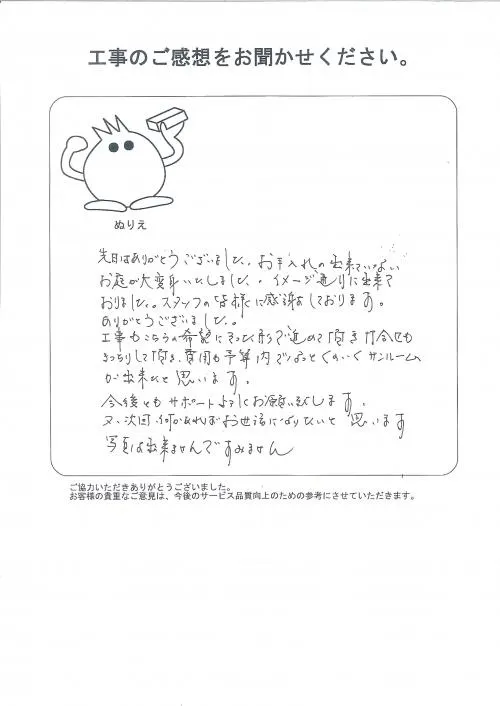 工事のご感想をお聞かせください。
ぬりえ
先日はありがとうございました。お手入れの出来ていない
お庭が大変身いたしました。イメージ通りに出来て
おりました。スタッフの皆様に感謝しております。
ありがとうございました。
工事もこちらの希望にそった形で進めて頂き打合せも
きっちりして頂き、費用も予算内でなっとくのいくサンルーム
が出来たと思います。
今後ともサポートよろしくお願い致します。
又、次回、何かあればお世話になりたいと思います
写真は出来ませんですみません
ご協力いただきありがとうございました。
お客様の貴重なご意見は、今後のサービス品質向上のための参考にさせていただきます。